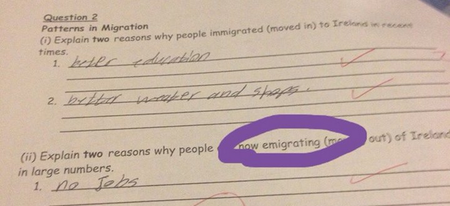 Question 2
Patterns in Migration
(i) Explain two reasons why people immigrated (moved in) to Ireland in recent
times.
1. beter education
2. bettor weater and shops.
(ii) Explain two reasons why people now emigrating (mo out) of Ireland
in large numbers.
1. no Jobs